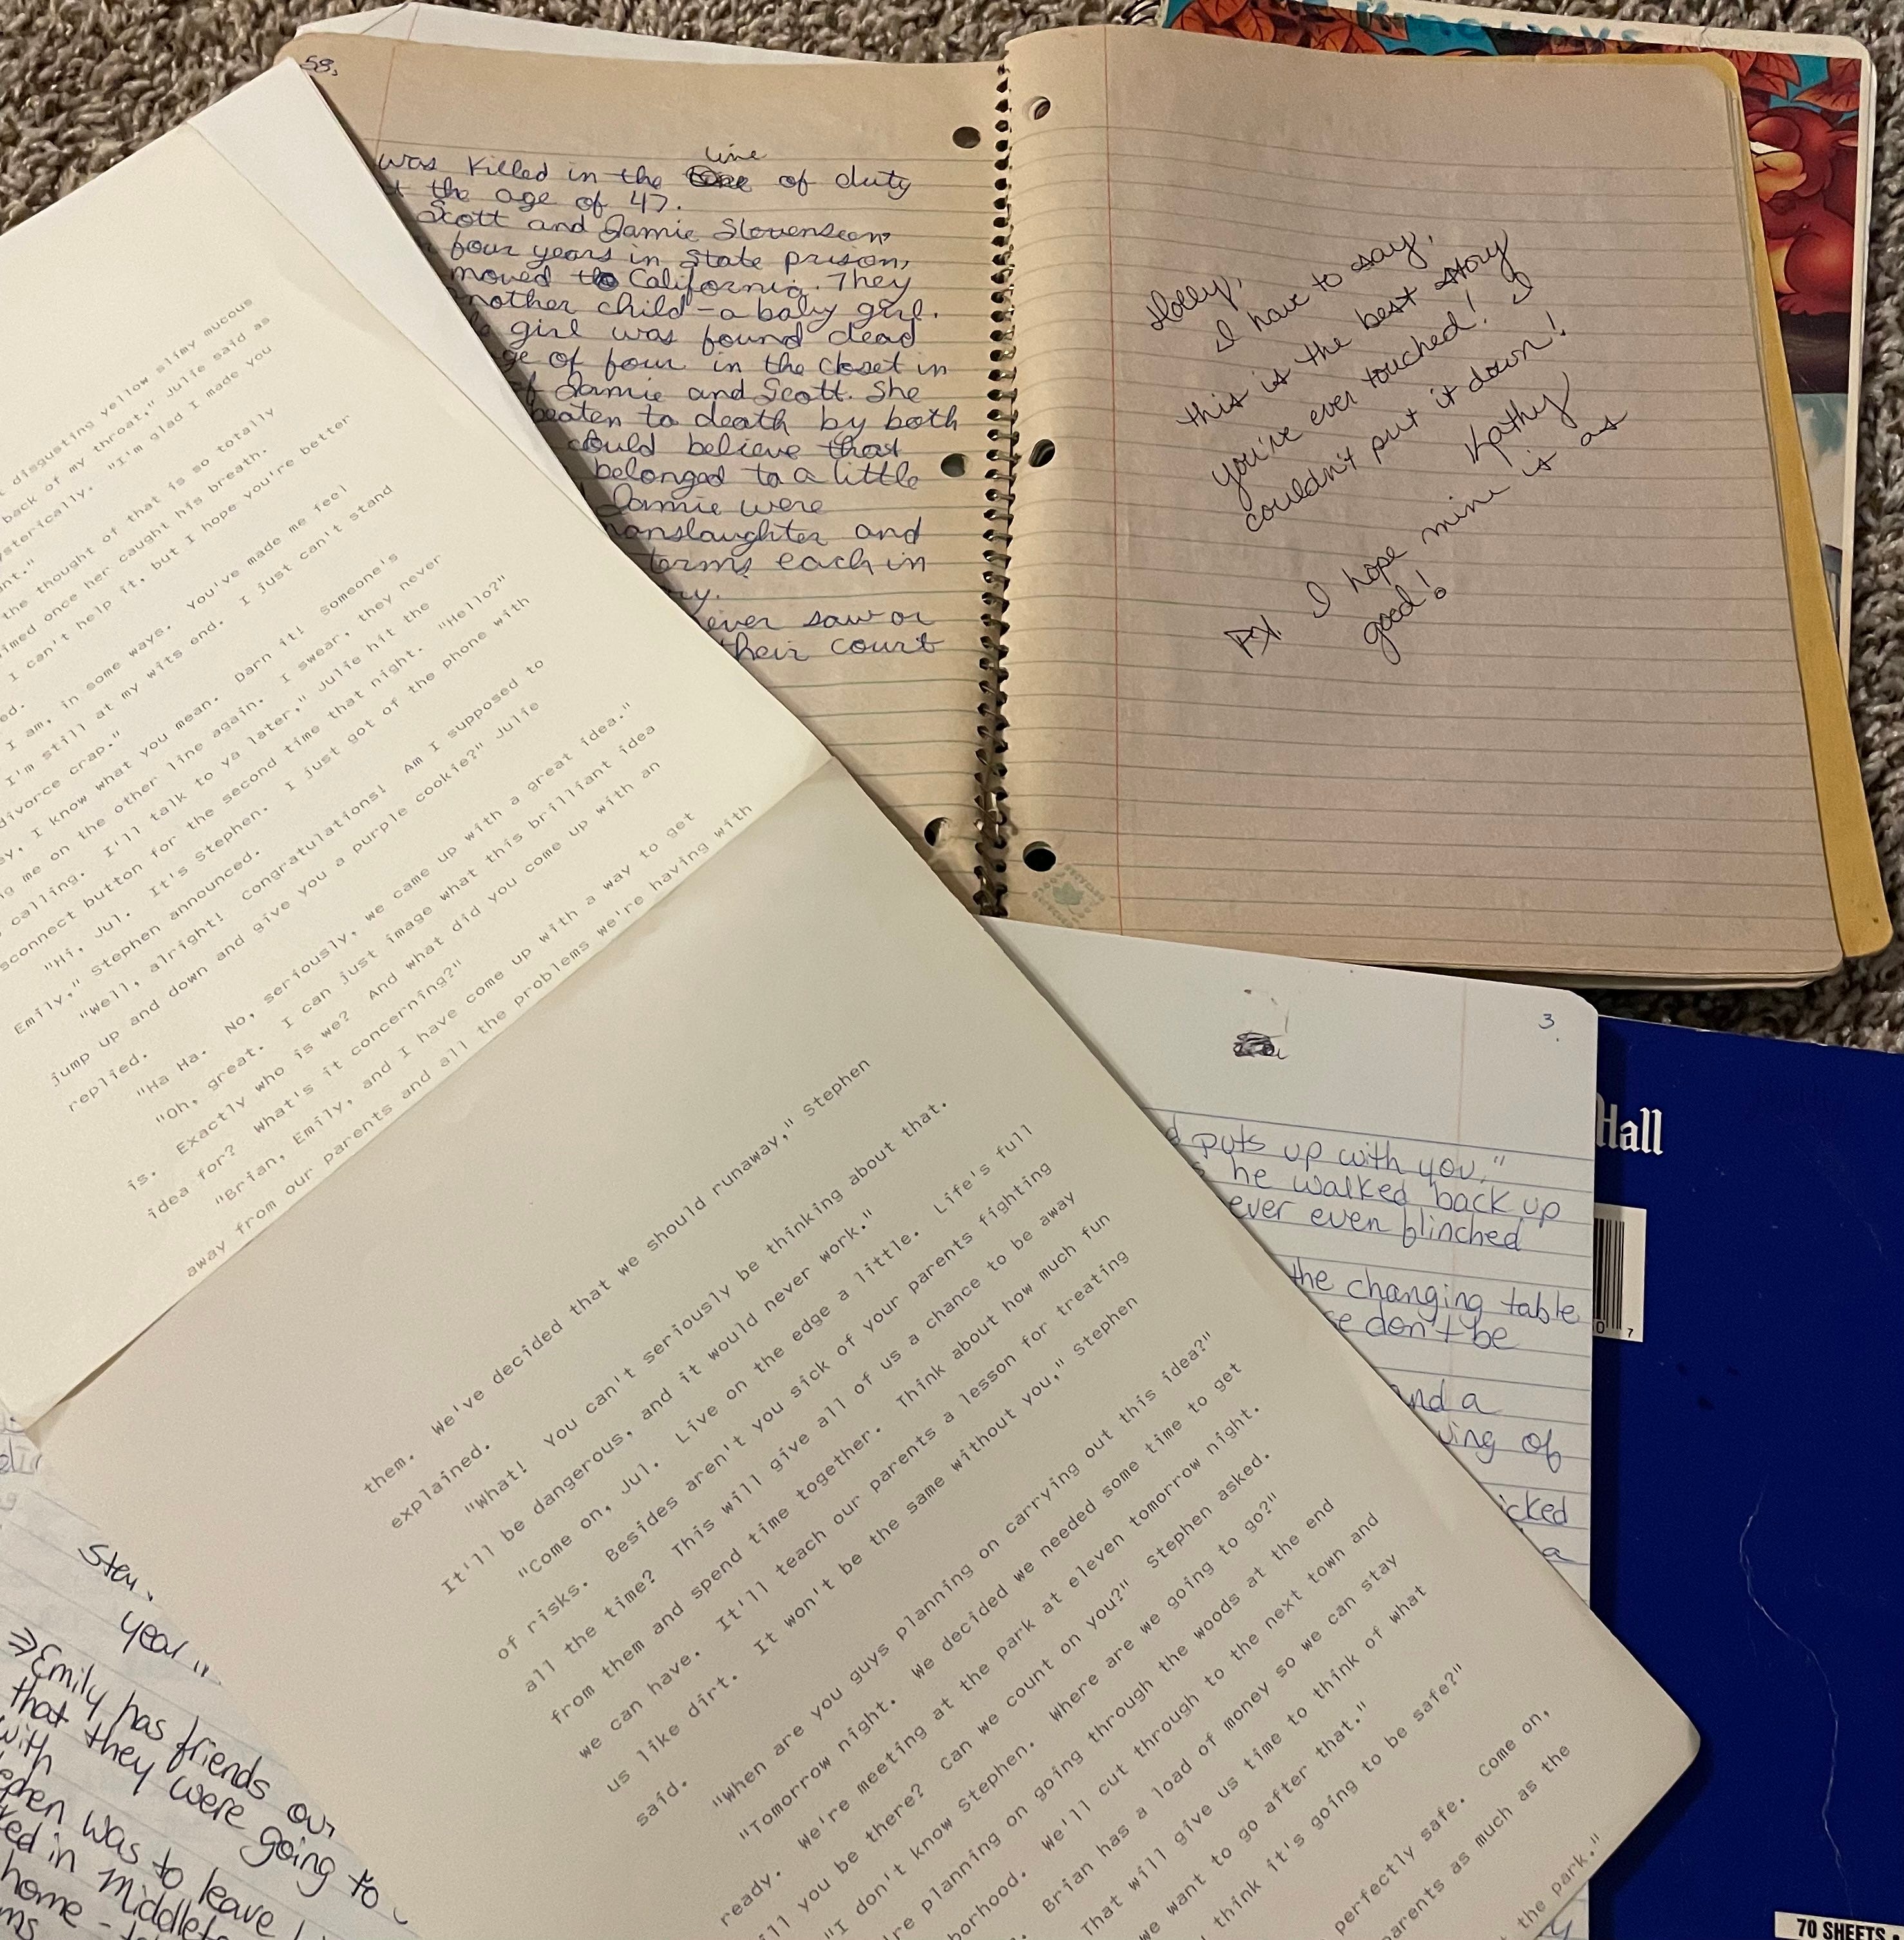 58.
was killed in the line of duty
the age of 47.
Scott and Jamie Slovensson,
four years in state prison,
moved to California. They
another child - a baby girl.
girl was found dead
of four in the closet in
of Jamie and Scott. She
beaten to death by both
could believe that
belonged to a little
Jamie were
manslaughter and
terms each in
ever saw or
their court
Holly,
I have to say,
this is the best story
you've ever touched! I
couldn't put it down!
Kathy
P.S. I hope mine is as
good!
disgusting yellow slimy mucous
back of my throat," Julie said as
"I'm glad I made you
the thought of that is so totally
once her caught his breath.
I can't help it, but I hope you're better
I am, in some ways. You've made me feel
I'm still at my wits end. I just can't stand
divorce crap."
I know what you mean. Darn it! Someone's
me on the other line again. I swear, they never
calling. I'll talk to ya later," Julie hit the
button for the second time that night. "Hello?"
"Hi, Jul. It's Stephen. I just got of the phone with
Emily," Stephen announced.
"Well, alright! Congratulations! Am I supposed to
jump up and down and give you a purple cookie?" Julie
replied.
"Ha Ha. No, seriously, we came up with a great idea."
"Oh, great. I can just image what this brilliant idea
is. Exactly who is we? And what did you come up with an
idea for? What's it concerning?"
"Brian, Emily, and I have come up with a way to get
away from our parents and all the problems we're having with
them. We've decided that we should runaway," Stephen
explained.
"What! You can't seriously be thinking about that.
It'll be dangerous, and it would never work."
"Come on, Jul. Live on the edge a little. Life's full
of risks. Besides aren't you sick of your parents fighting
all the time? This will give all of us a chance to be away
from them and spend time together. Think about how much fun
we can have. It'll teach our parents a lesson for treating
us like dirt. It won't be the same without you," Stephen
said.
"When are you guys planning on carrying out this idea?"
"Tomorrow night. We decided we needed some time to get
ready. We're meeting at the park at eleven tomorrow night.
you be there? Can we count on you?" Stephen asked.
"I don't know Stephen. Where are we going to go?"
planning on going through the woods at the end
We'll cut through to the next town and
Brian has a load of money so we can stay
That will give us time to think of what
we want to go after that."
think it's going to be safe?"
perfectly safe. Come on,
parents as much as the
the park."
3.
puts up with you,"
he walked back up
ever even flinched
the changing table
don't be
and a
of
a
Hall
0 7
70 SHEETS
year
⇒Emily has friends
that they were going to
with
was to leave
in
home -